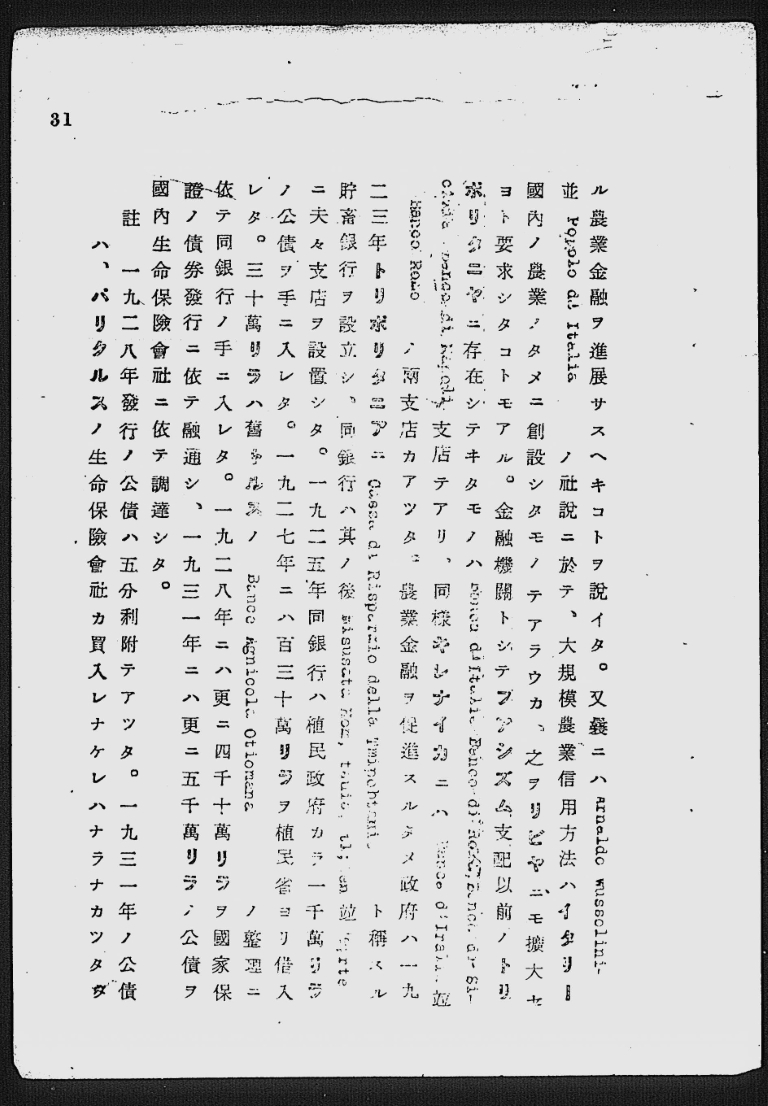 31
ル農業金融ヲ進展サスヘキコトヲ說イタ。又曩ニハ Arnaldo Mussolini-
並 Popolo di Italia ノ社說ニ於テ、大規模農業信用方法ハイタリー
國內ノ農業ノタメニ創設シタモノテアラウカ、之ヲリビヤニモ擴大セ
ヨト要求シタコトモアル。金融機關トシテフアシズム支配以前ノトリ
ポリタニヤニ存在シテキタモノハ Banca d'Italia Banco di Roma, Banca di Si-
Banco di Napoli 支店テアリ、同様キレナイカニハ Banco d'Italia 並
Banco Roma ノ兩支店カアツタ。農業金融ヲ促進スルタメ政府ハ一九
二三年トリポリタニアニ Cassa di Risparmio della ト稱スル
貯畜銀行ヲ設立シ、同銀行ハ其ノ後 Misusata Hom, 並
ニ夫々支店ヲ設置シタ。一九二五年同銀行ハ植民政府カラ一千萬リラ
ノ公債ヲ手ニ入レタ。一九二七年ニハ百三十萬リラヲ植民省ヨリ借入
レタ。三十萬リラハ舊キルスノ Banco Agnicola Otiomana ノ整理ニ
依テ同銀行ノ手ニ入レタ。一九二八年ニハ更ニ四千十萬リラヲ國家保
證ノ債券發行ニ依テ融通シ、一九三一年ニハ更ニ五千萬リラノ公債ヲ
國內生命保險會社ニ依テ調達シタ。
註 一九二八年發行ノ公債ハ五分利附テアツタ。一九三一年ノ公債
ハ、パリタルスノ生命保險會社カ買入レナケレハナラナカツタガ